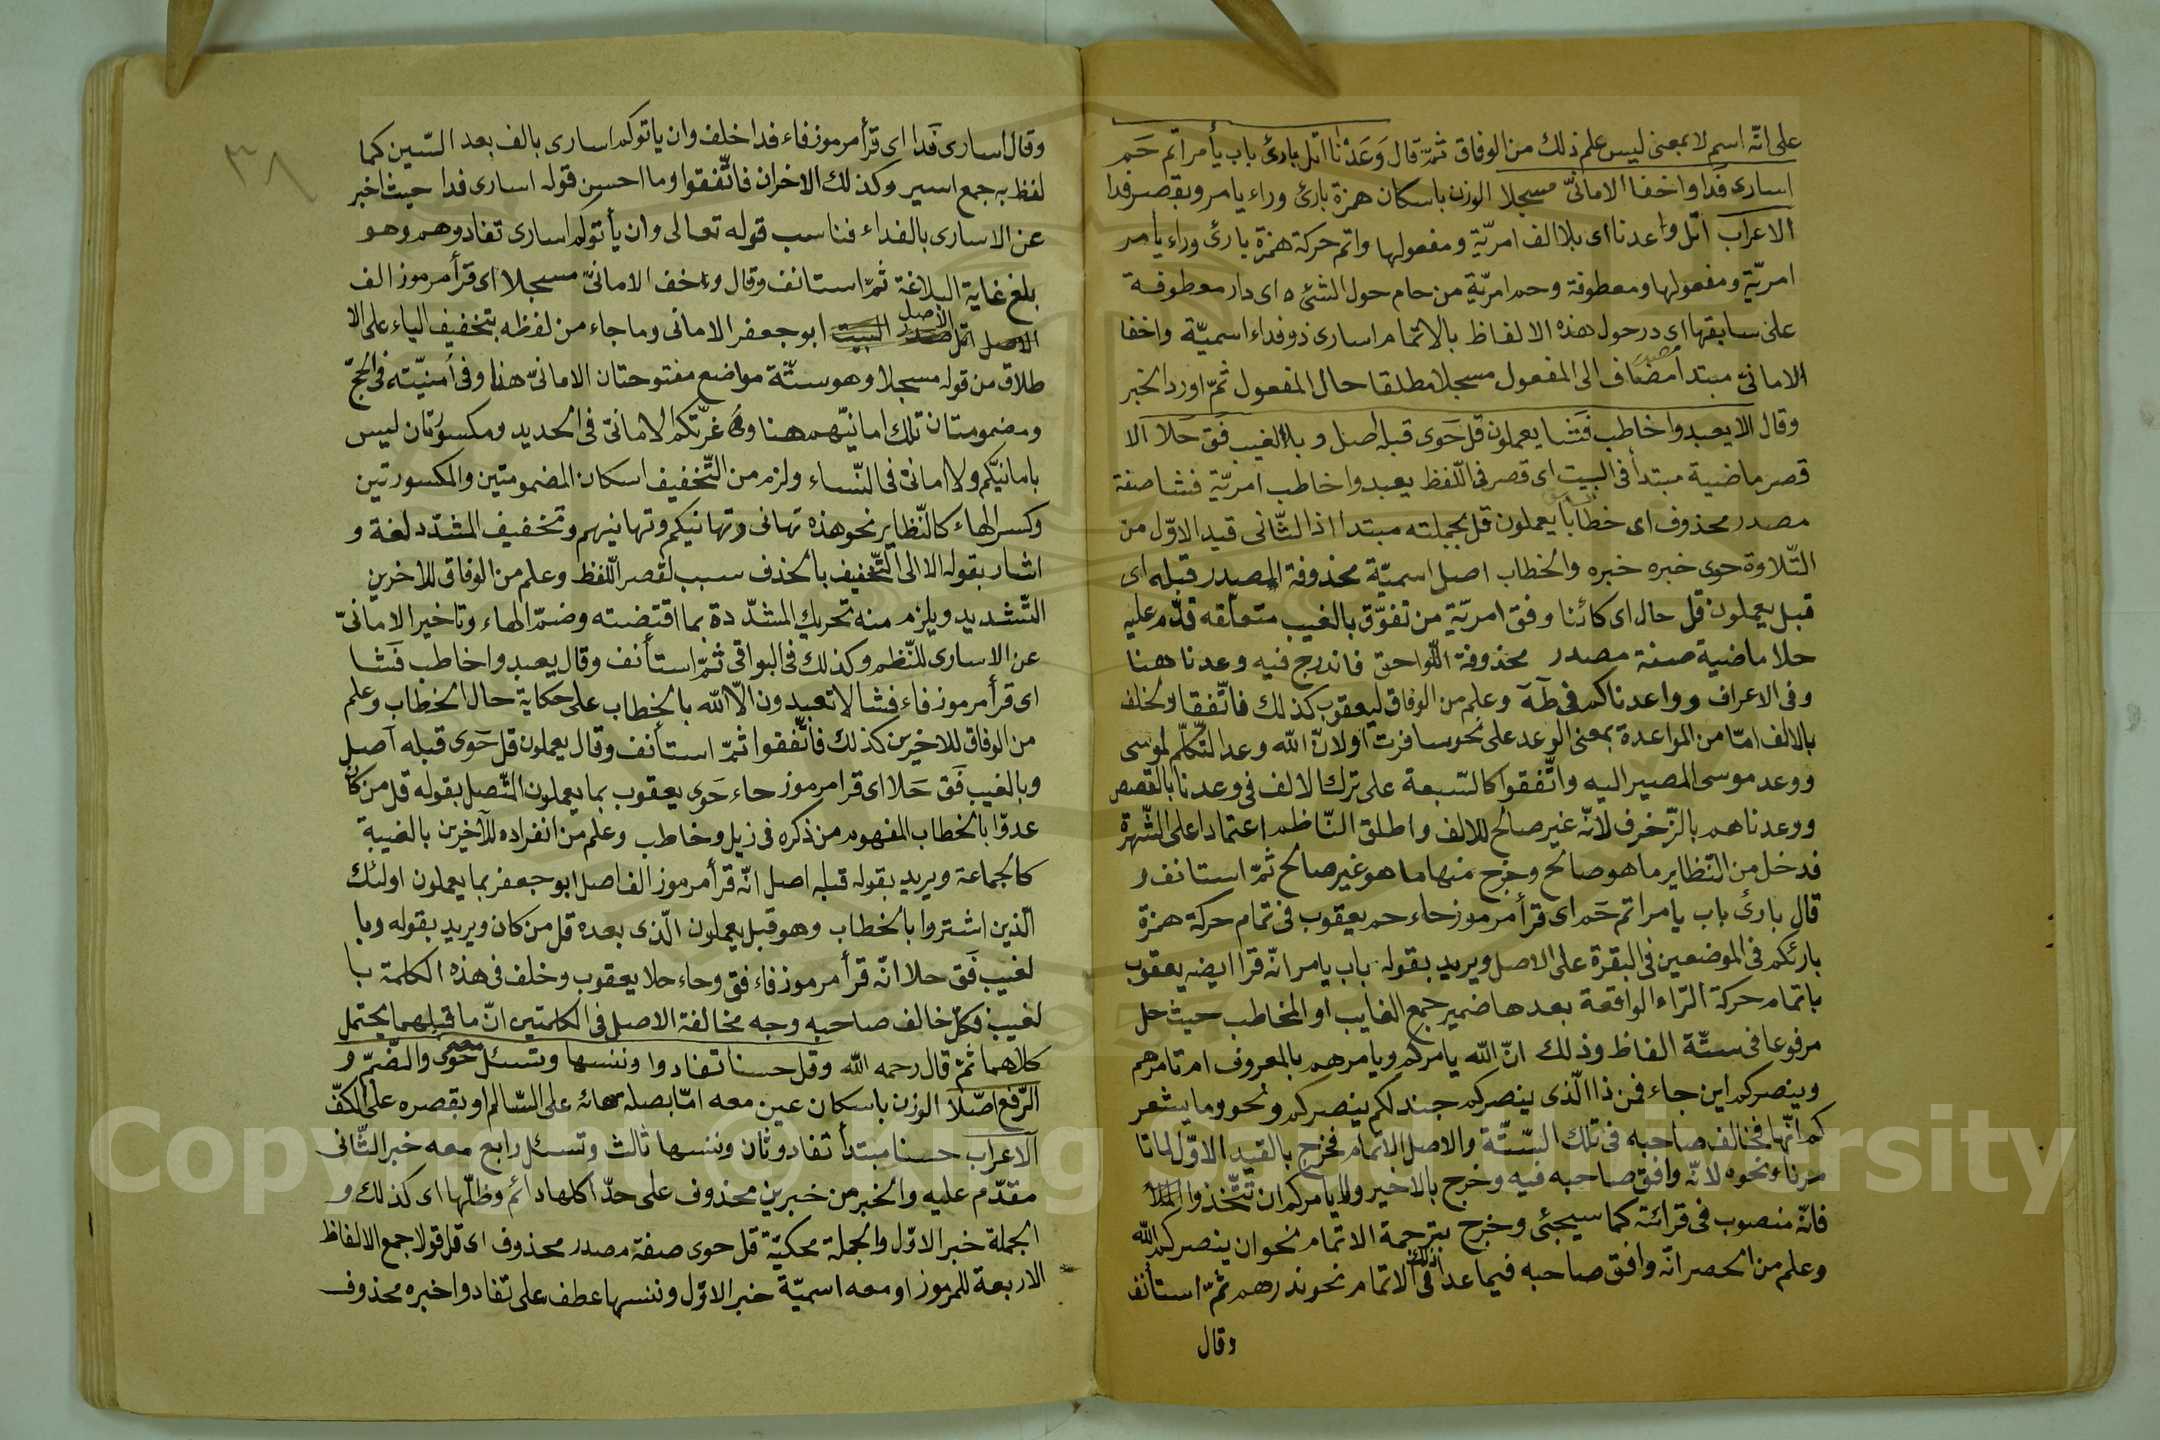 على انّه اسم لا بمعنى ليس علم ذلك من الوفاق ثمّ قال وَعَدْنا اتل بارئ باب يأمر اتم حَم
اسارى فَدا واخفا الامانىّ مسجلا الوزن باسكان همزة بارئ وراء يامر وبقصر فدا
الاعراب اتل واعدنا اى بلا الف امريّة ومفعولها واتم حركة همزة بارئ وراء يامر
امريّة ومفعولها ومعطوفة وحم امريّة من حام حول الشئ ه اى دار معطوفة
على سابقها اى در حول هذه الالفاظ بالاتمام اسارى ذو فداء اسميّة واخفا
الامانىّ مبتدأ مضاف الى المفعول مسجلا مطلقا حال المفعول ثمّ اورد الخبر
وقال الا يعبدوا خاطب فَشا يعملون قل حَوى قبله اصل وبالغيب فق حَلا الا
قصر ماضية مبتدأ فى البيت اى قصر فى اللّفظ يعبدوا خاطب امريّة فشا صفة
مصدر محذوف اى خطابا يعملون قل بجملته مبتدا اذ الثّانى قيد الاوّل من
التّلاوة حوى خبره خبره والخطاب اصل اسميّة محذوفة المصدر قبله اى
قبل يعملون قل حال اى كائنا وفق امريّة من تفوّق بالغيب متعلقه قدّم عليه
حلا ماضية صفة مصدر محذوفة اللّواحق فاندرج فيه وعدنا هنا
وفى الاعراف وواعدناكم فى طَهَ وعلم من الوفاق ليعقوب كذلك فاتّفقا والخلف
بالالف امّا من المواعدة بمعنى الوعد على نحو سافرت او لانّ الله وعد التّكلّم لموسى
ووعد موسى المصير اليه واتّفقوا كالسّبعة على ترك الالف فى وعدنا بالقصص
ووعدناهم بالزّخرف لانّه غير صالح للالف واطلق النّاظم اعتمادا على الشّهرة
فدخل من النّظاير ما هو صالح وخرج منها ما هو غير صالح ثمّ استانف و
قال بارئ باب يامر اتم حَم اى قرأ مرموز حاء حم يعقوب فى تمام حركة همزة
بارئكم فى الموضعين فى البقرة على الاصل ويريد بقوله باب يامر انّه قرا ايضه يعقوب
باتمام حركة الرّاء الواقعة بعدها ضمير جمع الغايب او المخاطب حيث حل
مرفوعا فى ستّة الفاظ وذلك انّ الله يامركم ويامرهم بالمعروف ام تامرهم
وينصركم اين جاء فمن ذا الّذى ينصركم جند لكم ينصركم ونحو وما يشعر
كم انّها فخالف صاحبه فى تلك السّتّة والاصل الاتمام فخرج بالقيد الاوّل لما تا
مرنا ونحوه لانّه وافق صاحبه فيه وخرج بالاخير ولا يامركم ان تتّخذوا
فانّه منصوب فى قرائته كما سيجئى وخرج بترجمة الاتمام نحو ان ينصركم الله
وعلم من الحصر انّه وافق صاحبه فيما عدا ذلك فى الاتمام نحو نذرهم ثمّ استأنف
وقال
٣٨
وقال اسارى فَدا اى قرأ مرموز فاء فدا خلف وان ياتوكم اسارى بالف بعد السّين كما
لفظ به جمع اسير وكذلك الاخران فاتّفقوا وما احسن قوله اسارى فدا حيث اخبر
عن الاسارى بالفداء فناسب قوله تعالى وان يأتوكم اسارى تفادوهم وهو
بلغ غاية البلاغة ثمّ استانف وقال واخف الامانىّ مسجلا اى قرأ مرموز الف
الاصل اتل صدر الاصل البيت ابو جعفر الامانى وما جاء من لفظه بتخفيف الياء على الا
طلاق من قوله مسجلا وهو ستّة مواضع مفتوحتان الامانىّ هذا وفى اُمنيّته فى الحجّ
ومضمومتان تلك امانيّهم هنا وغرّتكم الامانىّ فى الحديد ومكسورتان ليس
بامانيّكم ولا امانىّ فى النّساء ولزم من التّخفيف اسكان المضمومتين والمكسورتين
وكسر الهاء كالنّظاير نحو هذه تهانى وتهانيكم وتهانيهم وتخفيف المشدّد لغة و
اشار بقوله الا الى التّخفيف بالحذف سبب لقصر اللّفظ وعلم من الوفاق للاخرين
التّشديد ويلزم منه تحريك المشدّدة بما اقتضته وضمّ الهاء وتاخير الامانىّ
عن الاسارى للنّظم وكذلك فى البواقى ثمّ استأنف وقال يعبدوا خاطب فَشا
اى قرأ مرموز فاء فشا لا تعبدون الّا الله بالخطاب على حكاية حال الخطاب وعلم
من الوفاق للاخرين كذلك فاتّفقوا ثمّ استأنف وقال يعملون قل حَوى قبله اصل
وبالغيب فَق حَلا اى قرا مرموز حاء حَوى يعقوب بما يعملون المتّصل بقوله قل من كان
عدوّا بالخطاب المفهوم من ذكره فى زيل وخاطب وعلم من انفراده للآخرين بالغيبة
كالجماعة ويريد بقوله قبله اصل انّه قرأ مرموز الف اصل ابو جعفر بما يعملون اولئك
الّذين اشتروا بالخطاب وهو قبل يعملون الّذى بعده قل من كان ويريد بقوله وبا
لغيب فَق حلا انّه قرأ مرموز فاء فق وحاء حلا يعقوب وخلف فى هذه الكلمة با
لغيب فكلّ خالف صاحبه وجه مخالفة الاصل فى الكلمتين انّ ما قبلهما يحتمل
كلاهما ثمّ قال رحمه الله وقل حسنا تفادوا وننسها وتسئل حَوى والضّمّ و
الرّفع اصّلا الوزن باسكان عين معه امّا بصلة هائه على السّالم او بقصره على الكفّ
الاعراب حسنا مبتدأ تفادو ثان وننسها ثالث وتسئل رابع معه خبر الثّانى
مقدّم عليه والخبر من خبرين محذوف على حدّ اكلها دائم وظلّها اى كذلك و
الجملة خبر الاوّل والجملة محكيّة قل حوى صفة مصدر محذوف اى قل قولا جمع الالفاظ
الاربعة للمرموز او معه اسميّة خبر الاوّل وننسها عطف على تفادوا خبره محذوف
Copyright © King Saud University